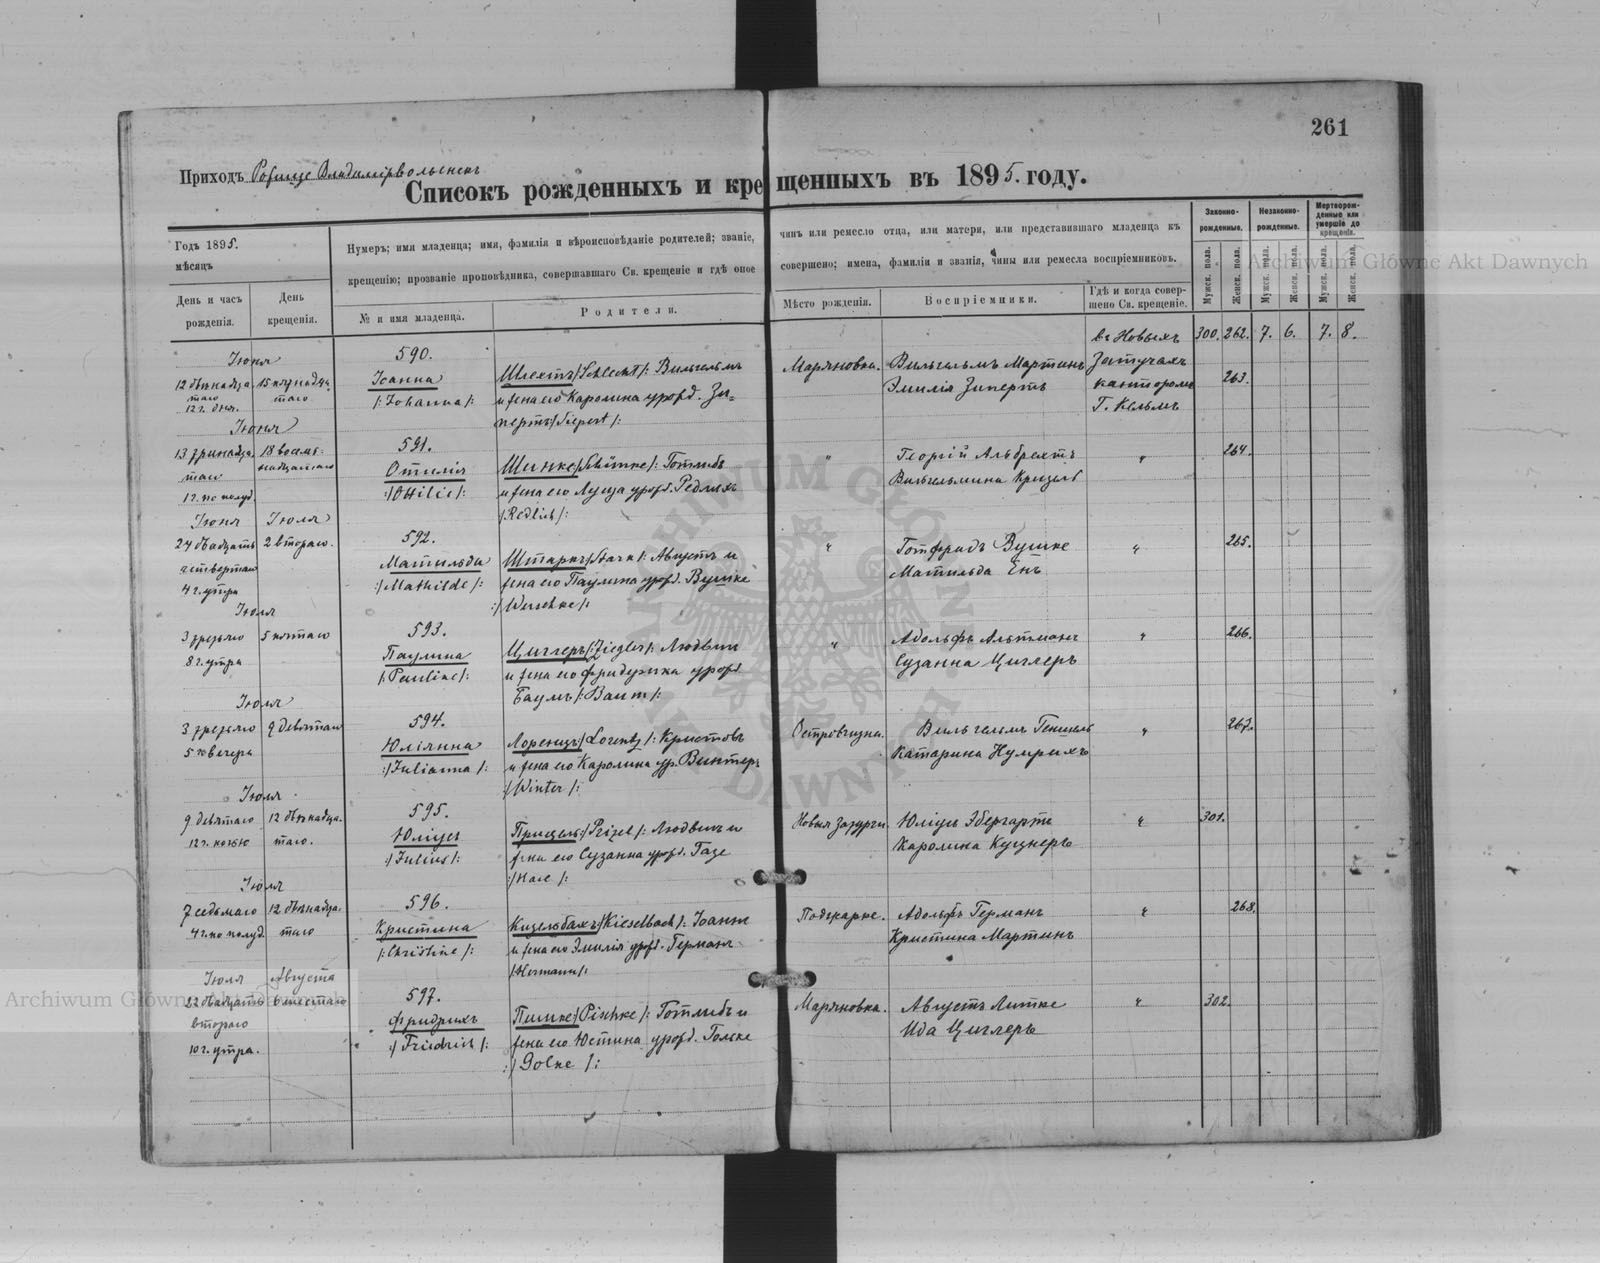 261
Приходъ Рожище Владимірволынскъ
Списокъ рожденныхъ и крещенныхъ въ 1895. году.
Годъ 1895.
мѣсяцъ
День и часъ рожденія.
День крещенія.
Нумеръ; имя младенца; имя, фамилія и вѣроисповѣданіе родителей; званіе, чинъ или ремесло отца, или матери, или представившаго младенца къ
крещенію; прозваніе проповѣдника, совершавшаго Св. крещеніе и гдѣ оное совершено; имена, фамиліи и званія, чины или ремесла воспріемниковъ.
№ и имя младенца.
Родители.
Мѣсто рожденія.
Воспріемники.
Гдѣ и когда совершено Св. крещеніе.
Законнорожденные.
Незаконнорожденные.
Мертворожденные или умершіе до крещенія.
Мужск. пола.
Женск. пола.
Мужск. пола.
Женск. пола.
Мужск. пола.
Женск. пола.
300. 262. 7. 6. 7. 8.
Іюня
12 двѣнадца
таго
12 г. дня.
15 пятнадца
таго
590.
Іоанна
/:Johanna/:
Шлехтъ/Schlecht/: Вильгельмъ
и жена его Каролина урожд. Зи=
пертъ/Siepert/:
Маряновка.
Вильгельмъ Мартинъ
Эмилія Зипертъ
въ Новыхъ
Затучахъ
канторомъ
Г. Кельмъ
263.
Іюня
13 тринадца
таго
1 г. по полуд.
18 восем-
надцатаго
591.
Отилія
:/Ottilie/:
Шинке/Schünke/: Готлибъ
и жена его Луиза урожд. Редлихъ
/Redlich/:
"
Георгій Альбрехтъ
Вильгельмина Крицель
"
264.
Іюня
24 двадцать
четвертаго
4 г. утра
Іюля
2 втораго.
592.
Матильда
:/Mathilde/:
Штаркъ/Stark/: Августъ и
жена его Паулина урожд. Вушке
:/Wuschke/:
"
Готфридъ Вушке
Матильда Енъ
"
265.
Іюля
3 третьяго
8 г. утра
5 пятаго
593.
Паулина
/:Pauline/:
Циглеръ/:Ziegler/: Людвигъ
и жена его Фридерика урожд
Баумъ/:Baum/:
"
Адольфъ Альтманъ
Сузанна Циглеръ
"
266.
Іюля
3 третьяго
5 г. вечера
9 девятаго
594.
Юліянна
:/Julianna/:
Лоренцъ/Lorentz/: Кристовъ
и жена его Каролина ур. Винтеръ
:/Winter/:
Островчизна.
Вильгельмъ Геншель
Катарина Нумрихъ
"
267.
Іюля
9 девятаго
12 г. ночью
12 двѣнадца-
таго.
595.
Юліусъ
:/Julius/:
Прицель:/Prizel/: Людвигъ и
жена его Сузанна урожд. Газе
:/Hase/:
Новыя Затурчи.
Юліусъ Эбергартъ
Каролина Куцнеръ
"
301.
Іюля
7 седьмаго
4 г. по полуд.
12 двѣнадца-
таго
596.
Кристина
/:Christine/:
Кизельбахъ/Kieselbach/: Іоаннъ
и жена его Эмилія урожд. Германъ
/Hermann/:
Адольфъ Германъ
Кристина Мартинъ
"
268.
Іюля
22 двадцать
втораго
10 г. утра.
Августа
6 шестаго
597.
Фридрихъ
:/Friedrich/:
Пишке/Pischke/: Готлибъ и
жена его Юстина урожд. Гольке
:/Golke/:
Маряновка.
Августъ Литке
Ида Циглеръ
"
302.
Archiwum Główne Akt Dawnych
Archiwum Główne Akt Dawnych
ARCHIWUM GŁÓWNE AKT DAWNYCH